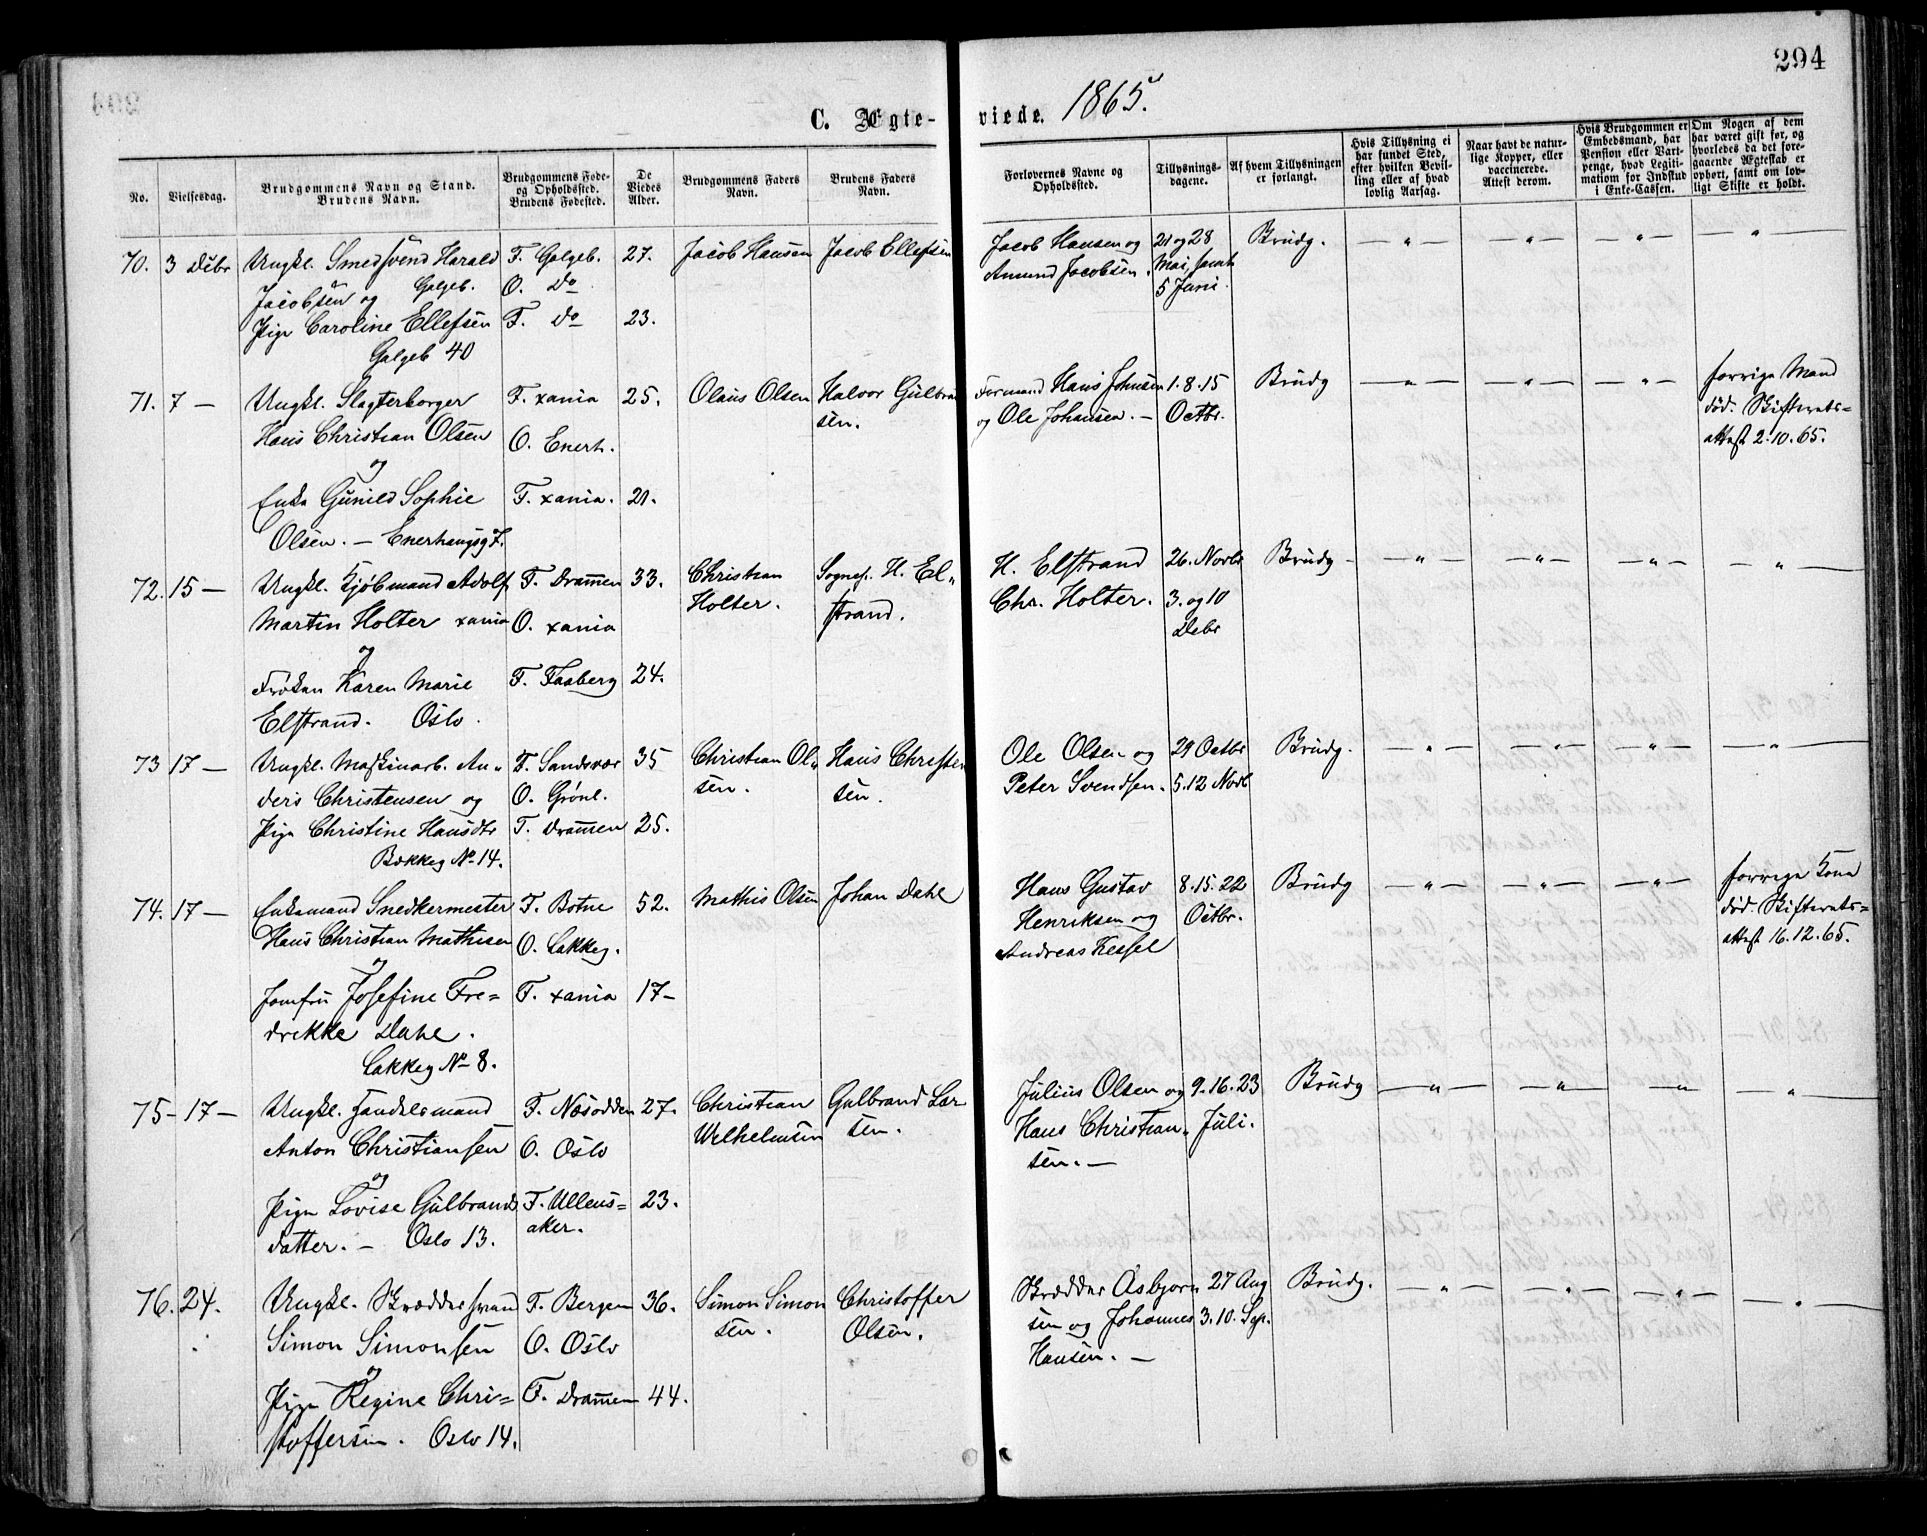 294
C. Ægte-
viede. 1865.
No.
Vielsesdag.
Brudgommens Navn og Stand.
Brudens Navn.
Brudgommens Føde-
og Opholdssted.
Brudens Fødested.
De
Viedes
Alder.
Brudgommens Faders
Navn.
Brudens Faders
Navn.
Forlovernes Navne og
Opholdssted.
Tillysnings-
dagene.
Af hvem Tillysningen
er forlangt.
Hvis Tillysning ei
har fundet Sted,
efter hvilken Bevil-
ling eller af hvad
lovlig Aarsag.
Naar havt de natur-
lige Kopper, eller
vaccinerede.
Attest derom.
Hvis Brudgommen er
Embedsmand, har
Pension eller Vart-
penge, hvad Legiti-
mation for Indskud
i Enke-Cassen.
Om Nogen af dem
har været gift før, og
hvorledes da det fore-
gaaende Ægteskab er
ophørt, samt om lov-
ligt Skifte er holdt.
70. 3 Debr Ungkl. Smedsvend Harald F. Galgeb. 27. Jacob Hansen Jacob Ellefsen Jacob Hansen og 21 og 28 Brudg. — " — — " — — " — — " —
Jacobsen og Galgeb. O. Do Amund Jacobsen. Mai, samt
Pige Caroline Ellefsen F. Do 23. 5 Juni.
Galgeb 40
71. 7 — Ungkl. Slagterborger F. xania 25. Olaus Olsen Halvor Gulbrand Formand Hans Johnsen 1. 8. 15 Brudg — " — — " — — " — forrige Mand
Hans Christian Olsen O. Enerh. sen. og Ole Johansen. — Octbr. død. Skifterets=
og attest 2.10.65.
Enke Gunild Sophie F. xania. 21.
Olsen. — Enerhaugsg 7.
72. 15 — Ungkl. Kjøbmand Adolf F. Drammen 33. Christian Sognep. H. El" H. Elstrand 26. Novbr Brudg — " — — " — — " — — " —
Martin Holter xania O. xania Holter. strand. Chr. Holter. 3. og 10
og Debr
Frøken Karen Marie F. Faaberg 24.
Elstrand. Oslo.
73 17 — Ungkl. Maskinarb. An" F. Sandsvær 35 Christian Ol" Hans Christen Ole Olsen og 29 Octbr Brudg. — " — — " — — " — — " —
ders Christensen og O. Grønl. sen. sen. Peter Svendsen. 5. 12 Novb
Pige Christine Hansdtr F. Drammen 25.
Bækkeg No 14.
74. 17 — Enkemand Snedkermester F. Botne 52. Mathis Olsen Johan Dahl Hans Gustav 8. 15. 22 Brudg — " — — " — — " — forrige Kone
Hans Christian Mathisen O. Lakkeg. Henriksen og Octbr. død. Skifterets=
og Andreas Kessel attest 16.12.65.
Jomfru Josefine Fre= F. xania 17 —
drikke Dahl.
Lakkeg No 8.
75 — 17 — Ungkl. Handelsmand F. Næsodden 27. Christian Gulbrand Lar Julius Olsen og 9. 16. 23 Brudg — " — — " — — " — "
Anton Christiansen O. Oslo Wilhelmsen sen. Hans Christian. Juli.
og sen. —
Pige Lovise Gulbrands F. Ullens= 23.
datter. — Oslo 13. aker.
76. 24. Ungkl. Skræddersvend F. Bergen 36. Simon Simon Christoffer Skrædder Asbjørn 27 Aug Brudg. — " — — " — — " — — " —
Simon Simonsen O. Oslo sen. Olsen. sen og Johannes 3. 10. Sep.
og Hansen. —
Pige Regine Chri= F. Drammen 44.
stoffersen. Oslo 14.